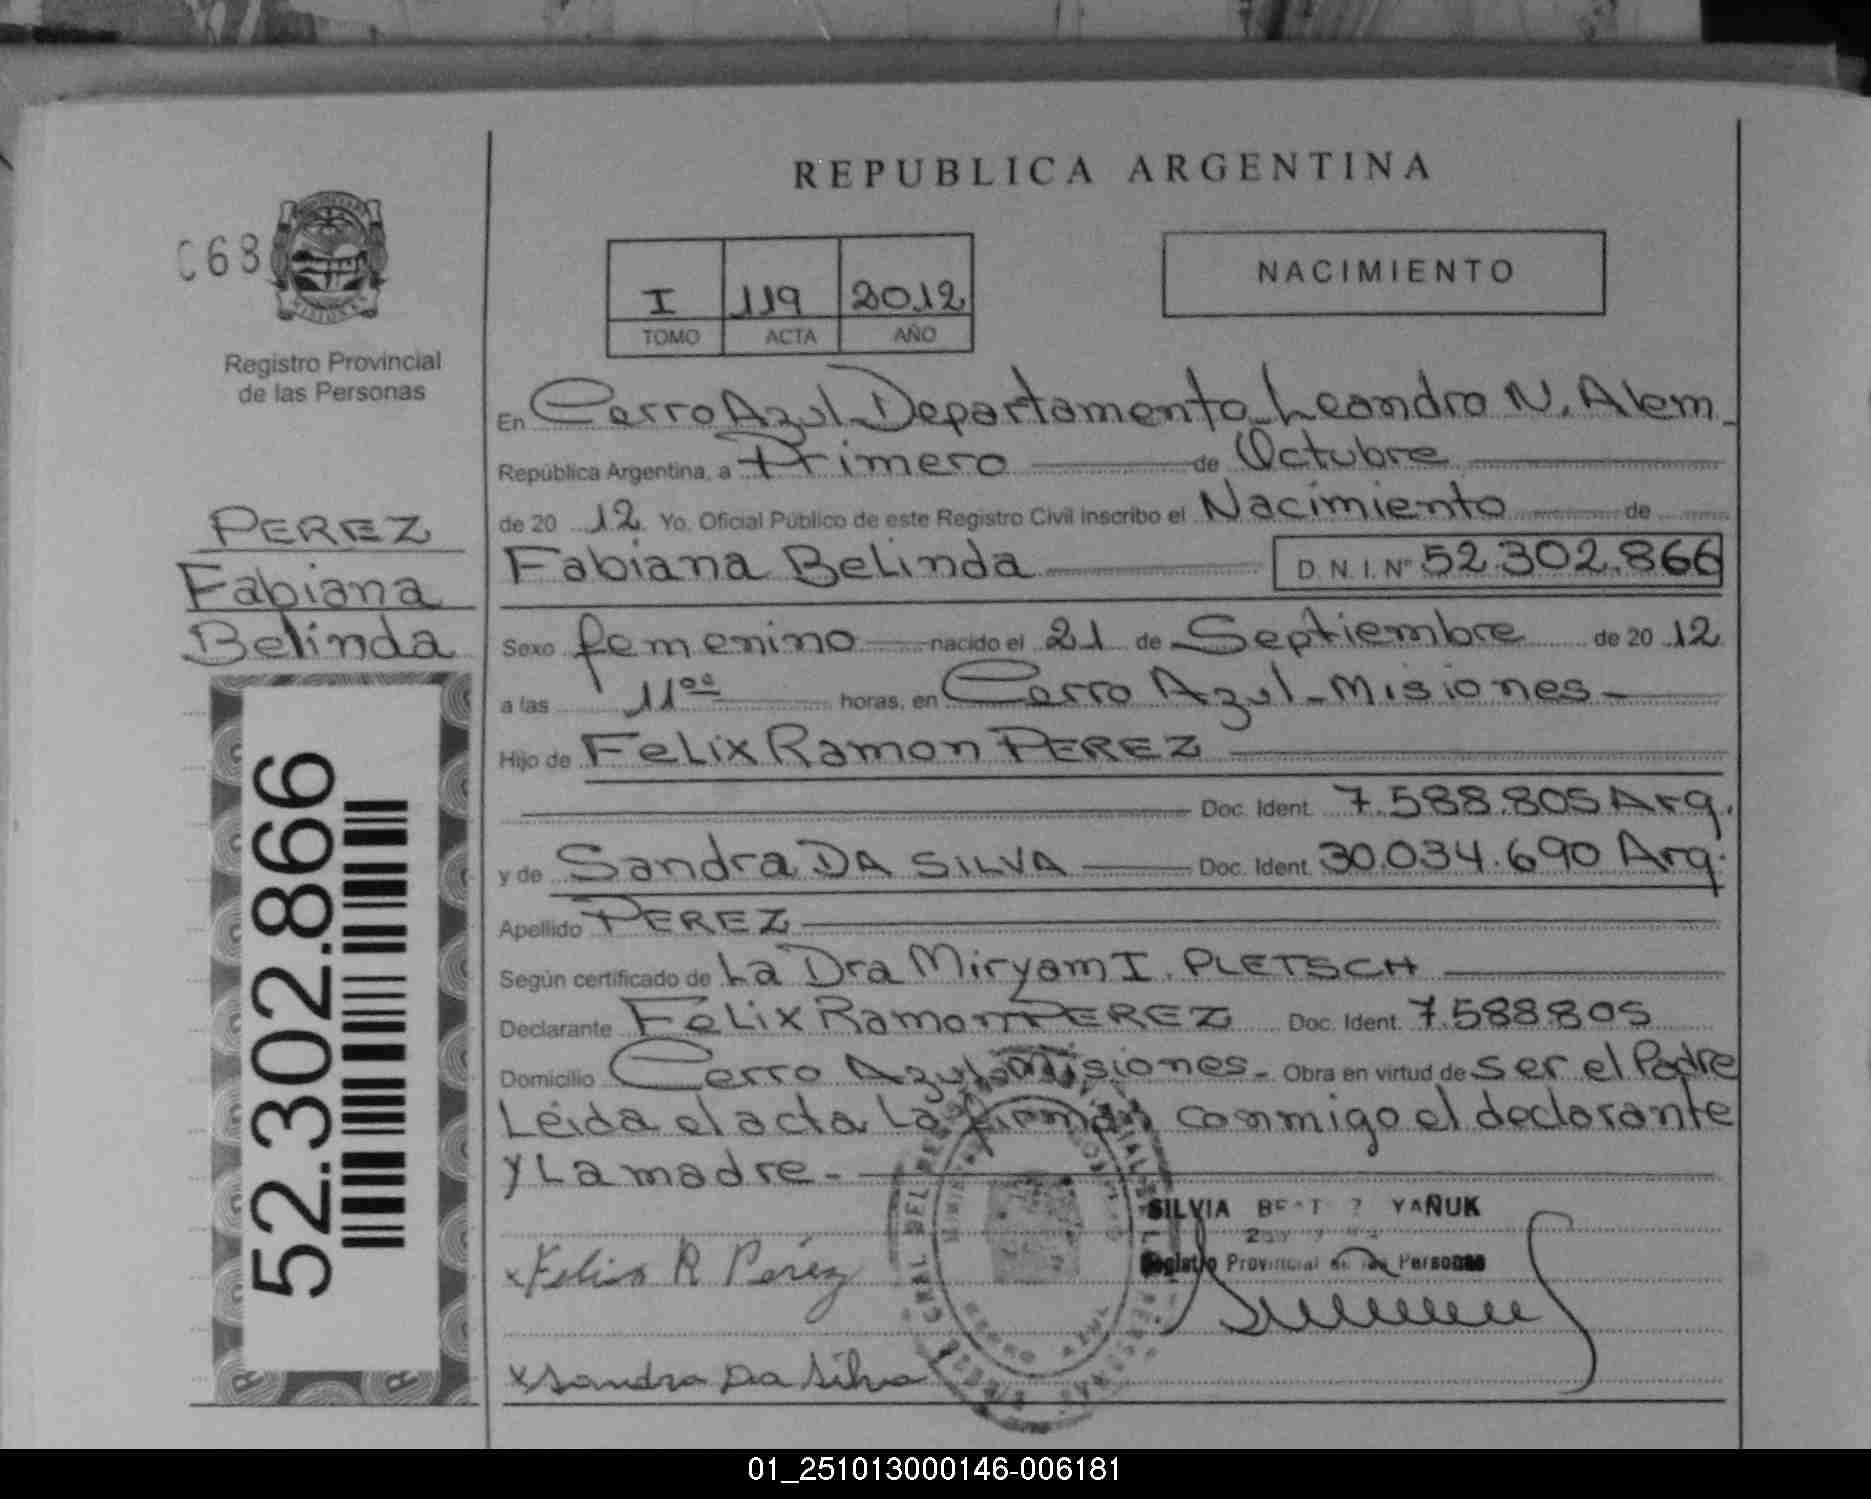 REPUBLICA ARGENTINA
068
Registro Provincial
de las Personas
I 119 2012
TOMO ACTA AÑO
NACIMIENTO
PEREZ
Fabiana
Belinda
52.302.866
En Cerro Azul Departamento Leandro N. Alem.
República Argentina, a Primero de Octubre
de 20 12 Yo. Oficial Público de este Registro Civil inscribo el Nacimiento de
Fabiana Belinda D.N.I.Nº 52.302.866
Sexo femenino nacido el 21 de Septiembre de 20 12
a las 11⁰⁰ horas, en Cerro Azul - Misiones -
Hijo de Felix Ramon PEREZ
Doc. Ident. 7.588.805 Arg.
y de Sandra DA SILVA Doc. Ident. 30.034.690 Arg.
Apellido PEREZ
Según certificado de La Dra Miryam I. PLETSCH
Declarante Felix Ramon PEREZ Doc. Ident. 7.588.805
Domicilio Cerro Azul-Misiones - Obra en virtud de ser el Padre
Leida el acta La firman conmigo el declarante
y La madre -
SILVIA YAÑUK
Registro Provincial de las Personas
x Felix R Pérez
x Sandra Da Silva
01_251013000146-006181